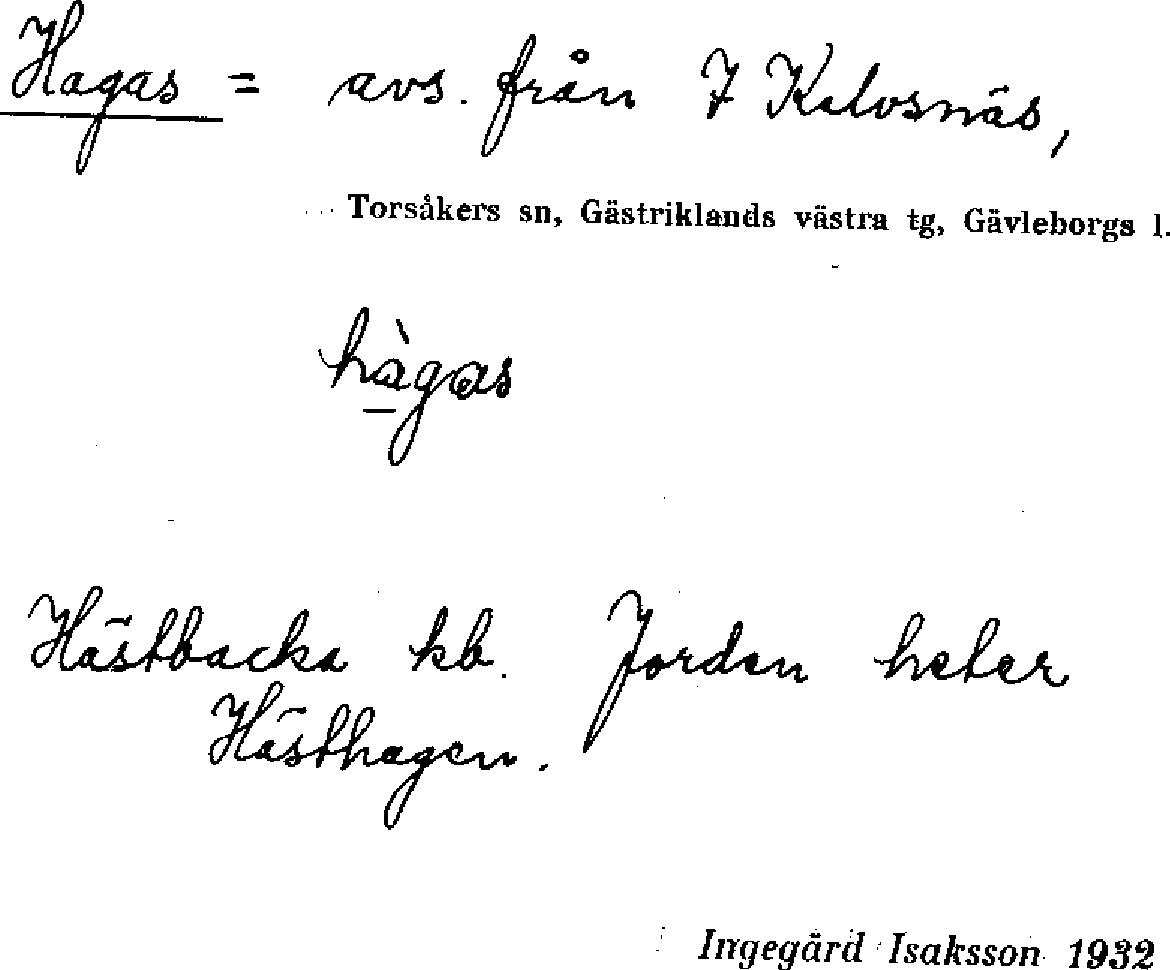 Hagas = avs. från 7 Kalvsnäs,
Torsåkers sn, Gästriklands västra tg, Gävleborgs l.
hàgas
Hästbacka kb. Jorden heter
Hästhagen.
Ingegärd Isaksson 1932